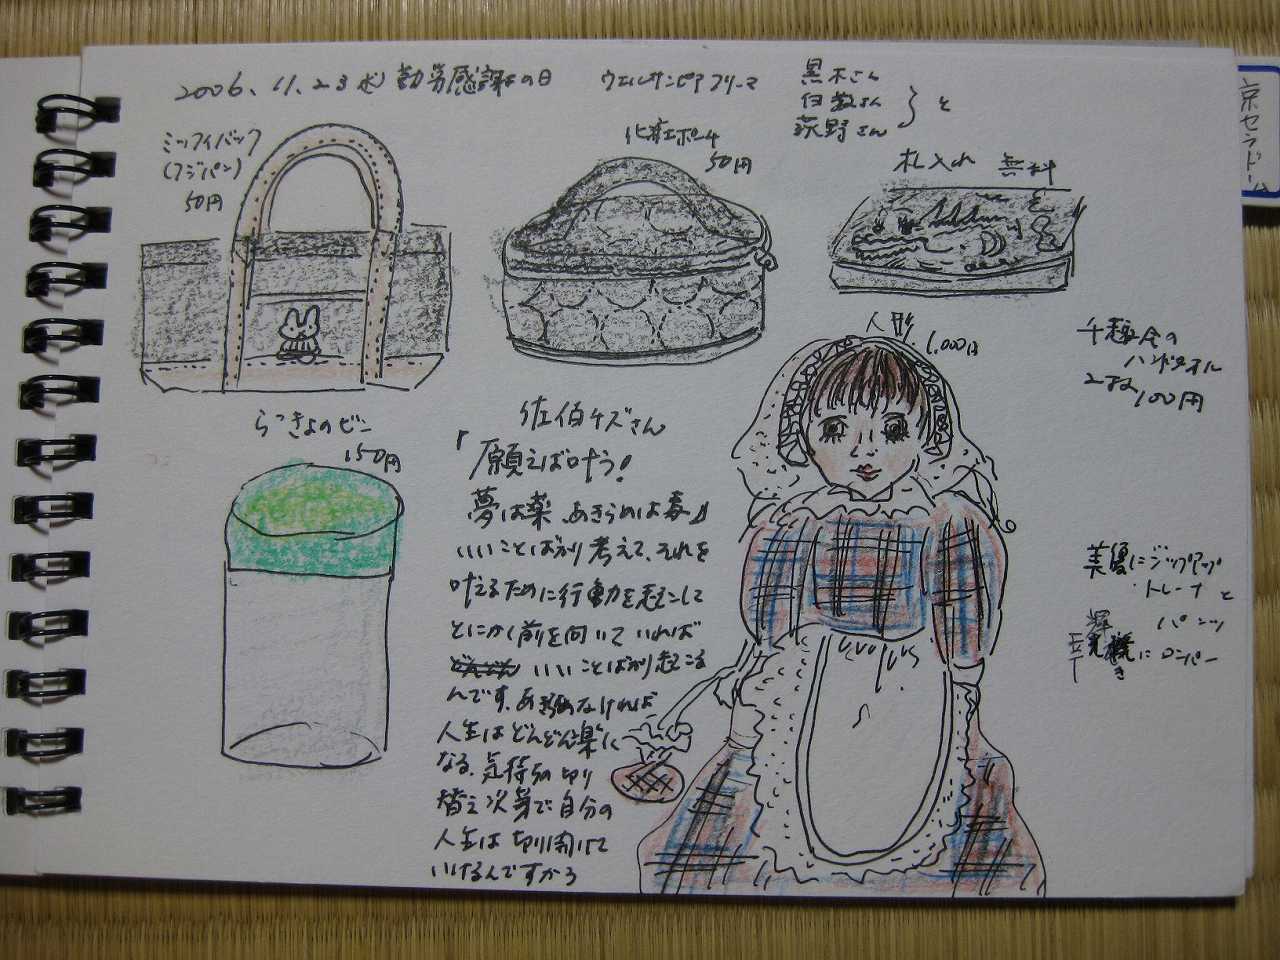 2006.11.23(水)勤労感謝の日 ウェルサンピアフリーマ
黒木さん
白数さん
荻野さん と
京セラドーム
ミッフィバック
(フジパン)
50円
化粧ポーチ
50円
札入れ 無料
人形
1,000円
千趣会の
ハンドタオル
2枚
100円
らっきょのビン
150円
佐伯チズさん
「願えば叶う!
夢は薬、あきらめは毒」
いいことばかり考えて、それを
叶えるために行動を起こして
とにかく前を向いていれば
いいことばかり起こる
んです。あきらめなければ
人生はどんどん楽に
なる。気持ちの切り
替え次第で自分の
人生は切り開いて
いけるんですから
美優にジップアップ
トレーナと
パンツ
にロンパー